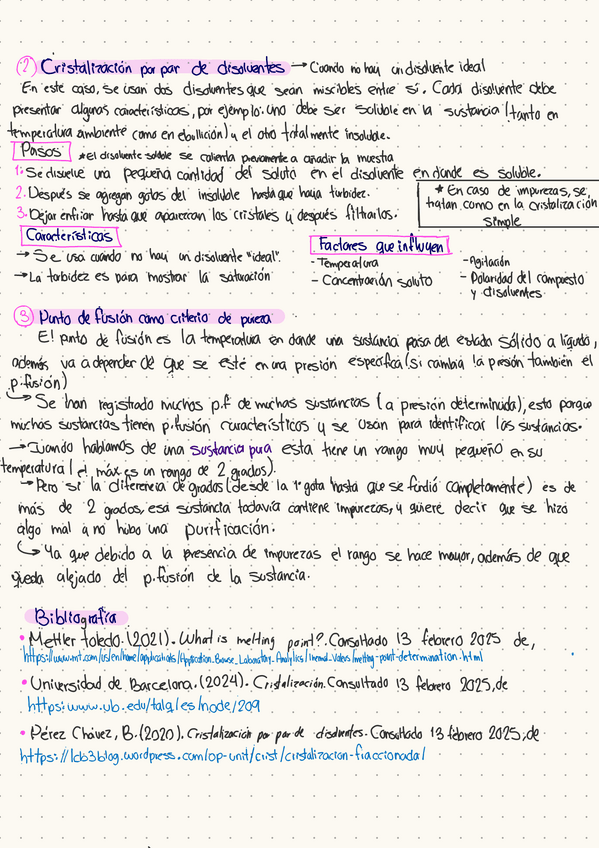 2 Cristalización por par de disolventes → Cuando no hay un disolvente ideal
En este caso, se usan dos disolventes que sean miscibles entre sí. Cada disolvente debe
presentar algunas características, por ejemplo: uno debe ser soluble en la sustancia (tanto en
temperatura ambiente como en ebullición) y el otro totalmente insoluble.
Pasos *el disolvente soluble se calienta previamente a añadir la muestra
1. Se disuelve una pequeña cantidad del soluto en el disolvente en donde es soluble.
2. Después se agregan gotas del insoluble hasta que haya turbidez.
3. Dejar enfriar hasta que aparezcan los cristales y después filtrarlos.
* En caso de impurezas, se
tratan como en la cristalización
simple
Características
→ Se usa cuando no hay un disolvente "ideal".
→ La turbidez es para mostrar la saturación
Factores que influyen
- Temperatura
- Concentración soluto
- Agitación
- Polaridad del compuesto
y disolventes
3 Punto de fusión como criterio de pureza
El punto de fusión es la temperatura en donde una sustancia pasa del estado sólido a líquido,
además va a depender de que se esté en una presión específica (si cambia la presión también el
p. fusión)
→ Se han registrado muchos p.f de muchas sustancias (a presión determinada), esto porque
muchas sustancias tienen p. fusión característicos y se usan para identificar las sustancias.
→ Cuando hablamos de una sustancia pura esta tiene un rango muy pequeño en su
temperatura (el máx es un rango de 2 grados).
→ Pero si la diferencia de grados (desde la 1° gota hasta que se fundió completamente) es de
más de 2 grados, esa sustancia todavía contiene impurezas, y quiere decir que se hizo
algo mal y no hubo una purificación.
→ Ya que debido a la presencia de impurezas el rango se hace mayor, además de que
queda alejado del p. fusión de la sustancia.
Bibliografía
• Mettler Toledo. (2021). What is melting point?. Consultado 13 febrero 2025 de,
• Universidad de Barcelona. (2024). Cristalización. Consultado 13 febrero 2025, de
https:www.ub.edu/talq/es/node/209
• Pérez Chávez, B. (2020). Cristalización por par de disolventes. Consultado 13 febrero 2025, de
https://lcb3blog.wordpress.com/op-unit/crist/cristalizacion-fraccionada/